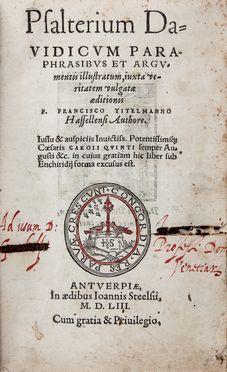 Psalterium Da-
VIDICVM PARA-
PHRASIBVS ET ARGV-
mentis illustratum, iuxta ve-
ritatem vulgatæ
æditionis
F. FRANCISCO TITELMANNO
Hassellensi Authore.
Iussu & auspiciis Inuictiss. Potentissimiq́;
Cæsaris CAROLI QVINTI semper Au-
gusti &c. in cuius gratiam hic liber sub
Enchiridij forma excusus est.
CONCORDIA RES PARVAE CRESCVNT
Ad usum D.
Venetiar
ANTVERPIÆ,
In ædibus Ioannis Steelsii,
M. D. LIII.
Cum gratia & Priuilegio,